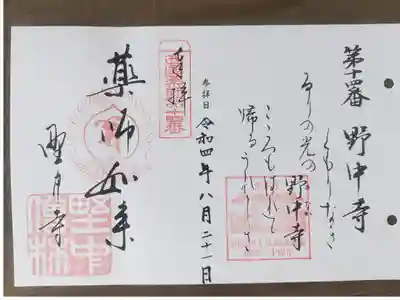 第十四番 野中寺
くもりなき
るりの光の
野中寺
こころもはれて
帰るうれしさ
参拝日 令和四年八月二十一日
奉拝
薬師如来
野中寺